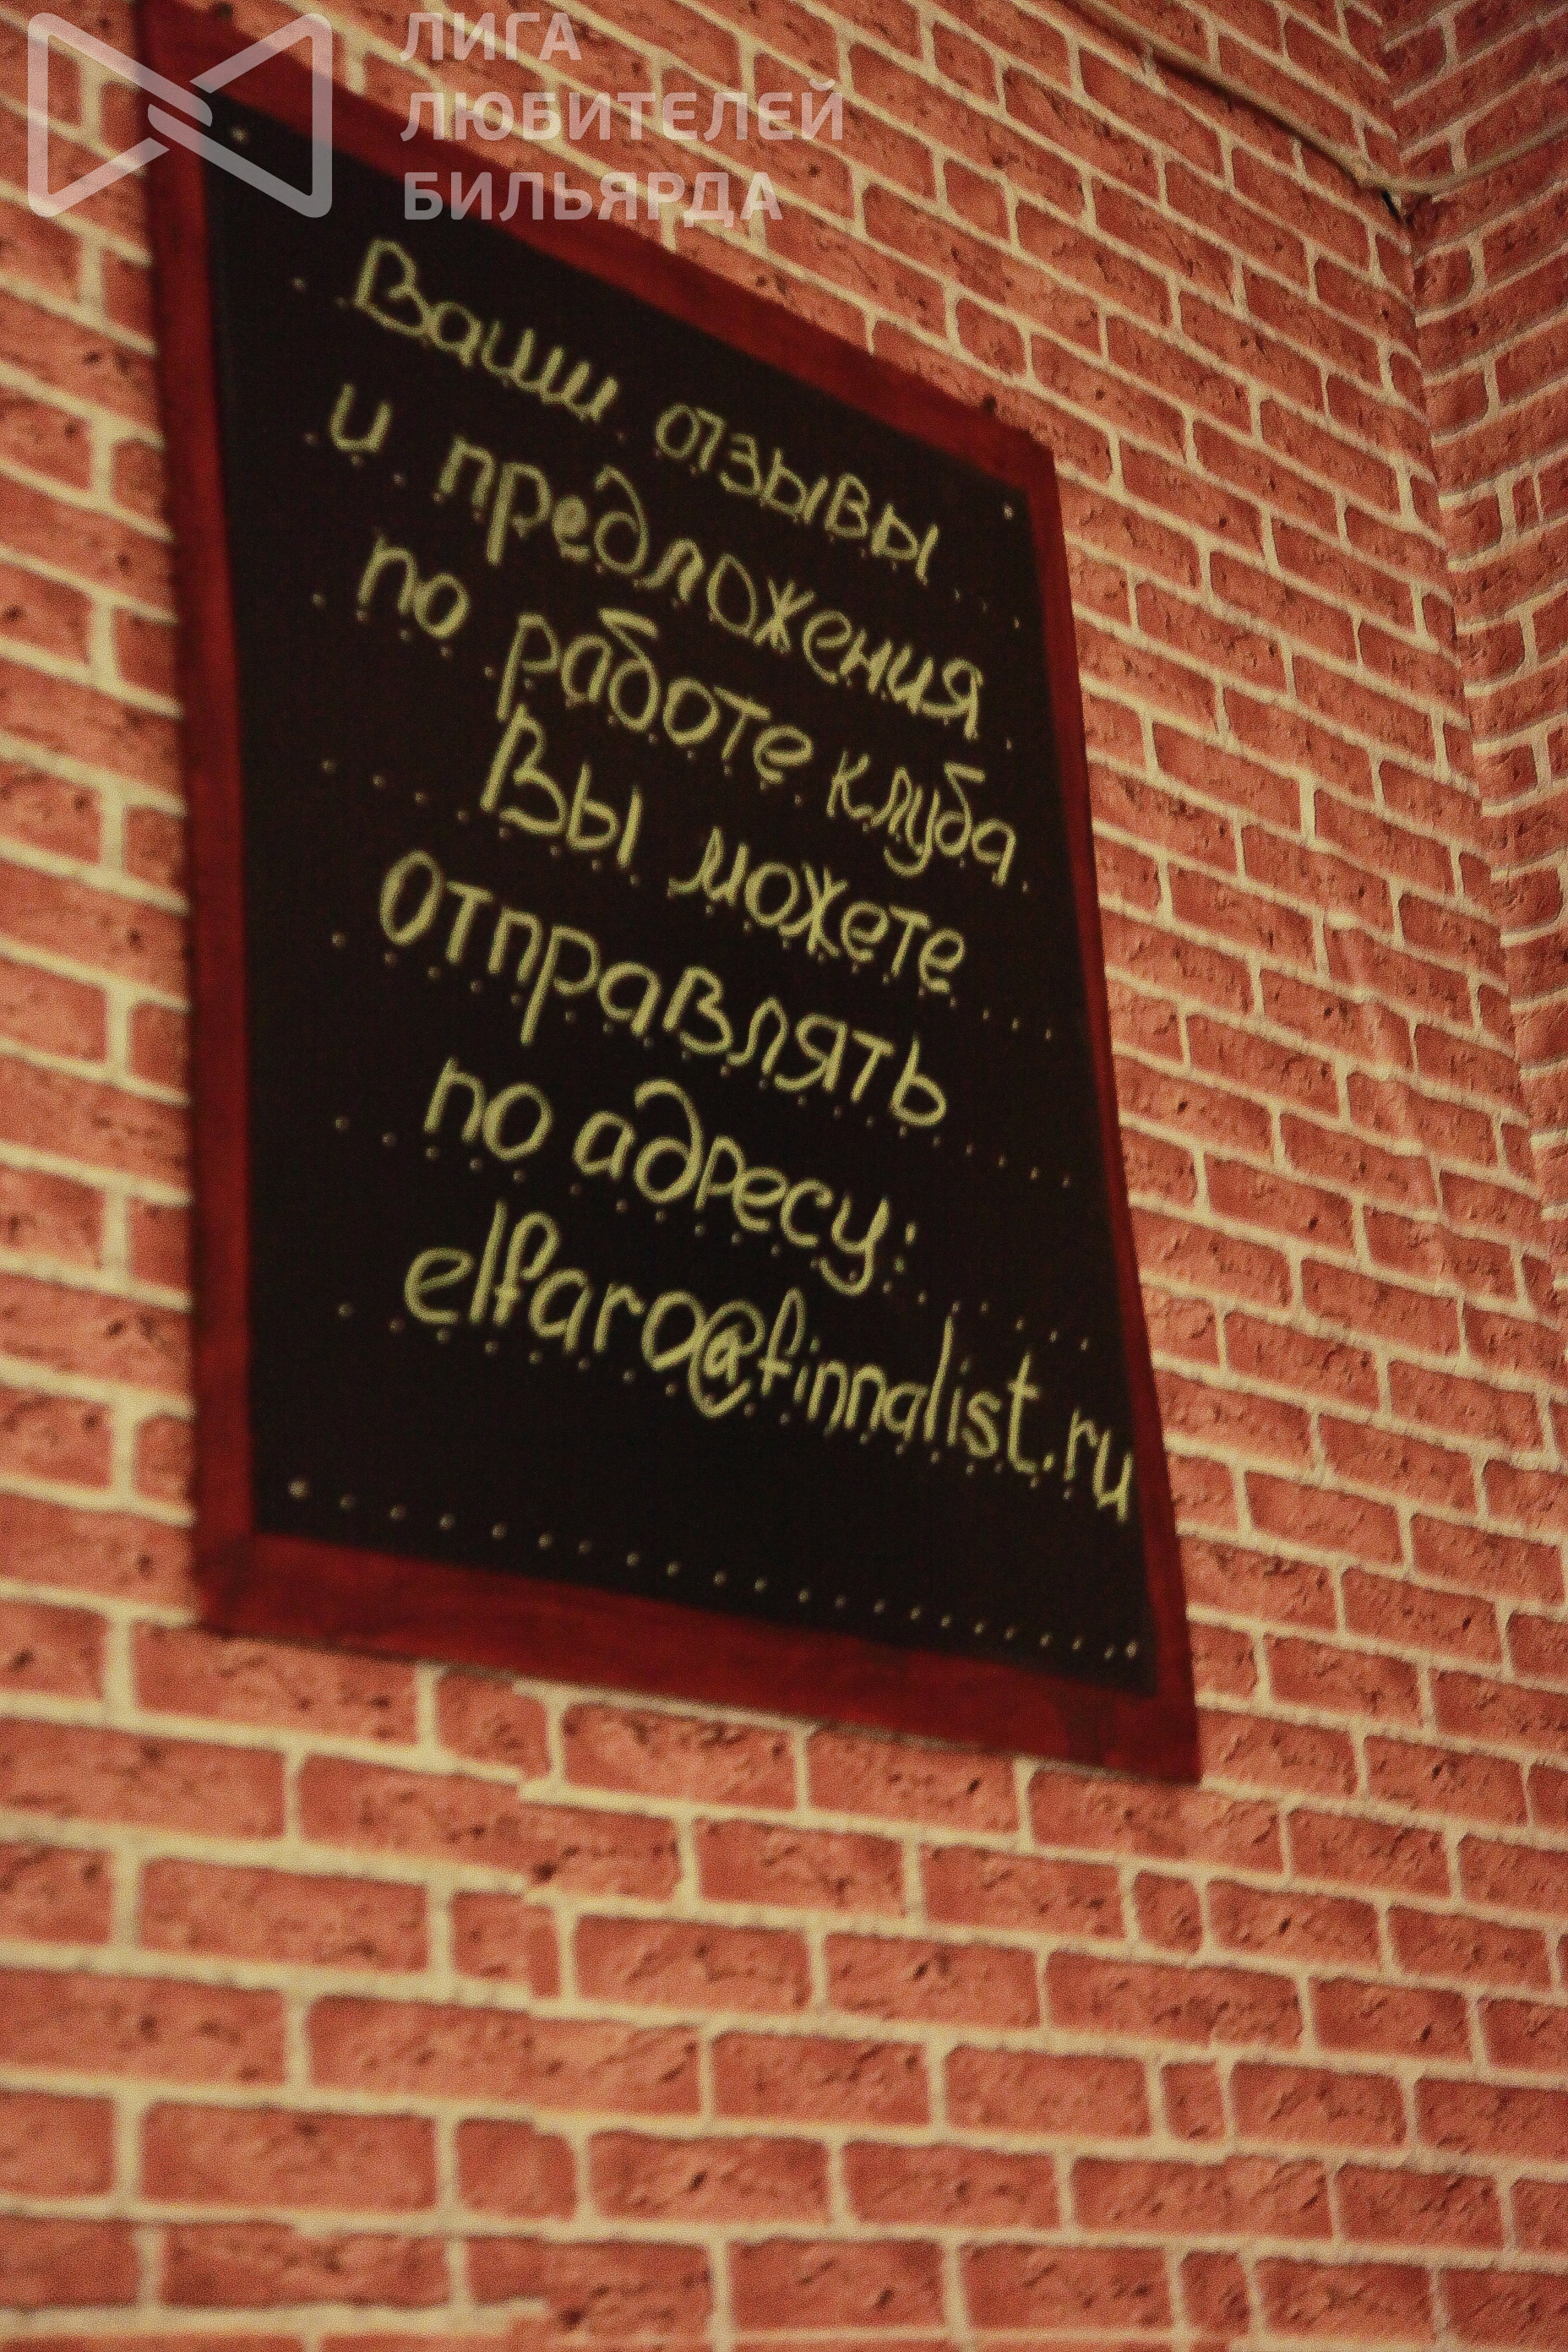 ЛИГА
ЛЮБИТЕЛЕЙ
БИЛЬЯРДА
Ваши отзывы
и предложения
по работе клуба
Вы можете
отправлять
по адресу:
elfaro@finnalist.ru